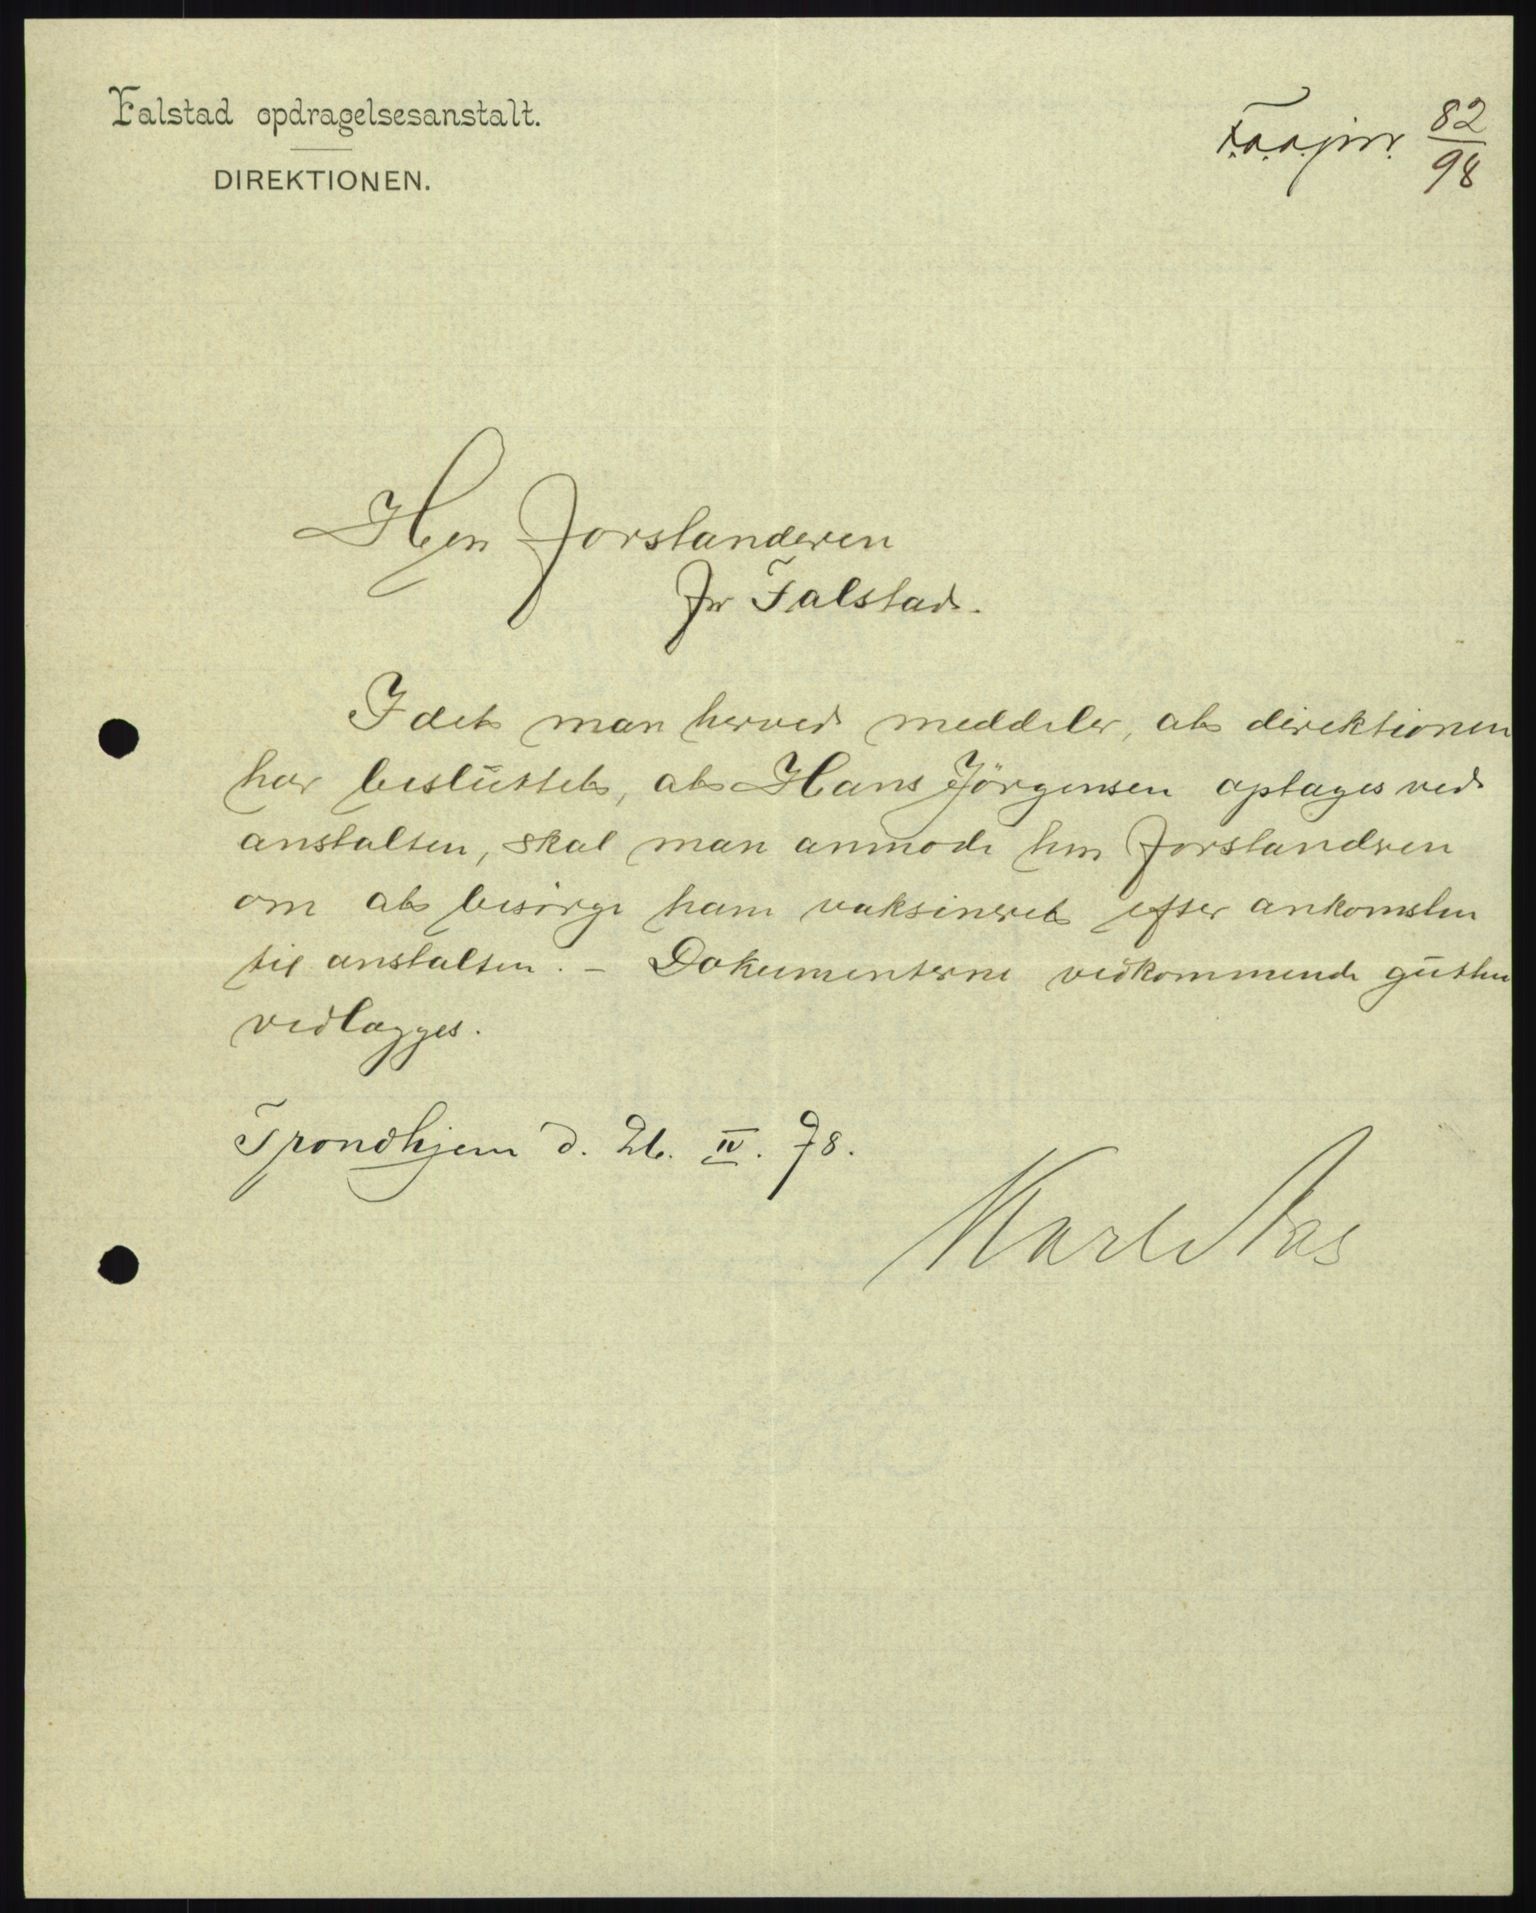 Falstad opdragelsesanstalt.
DIREKTIONEN.
F.a.a.jnr. 82/98
Herr Forstanderen
for Falstad.
Idet man herved meddeler, at direktionen
har besluttet, at Hans Jörgensen optages ved
anstalten, skal man anmode hrr Forstandren
om at besörge ham vaksineret efter ankomsten
til anstalten. – Dokumenterne vedkommende gutten
vedlægges.
Trondhjem d. 26. IV. 98.
Karl